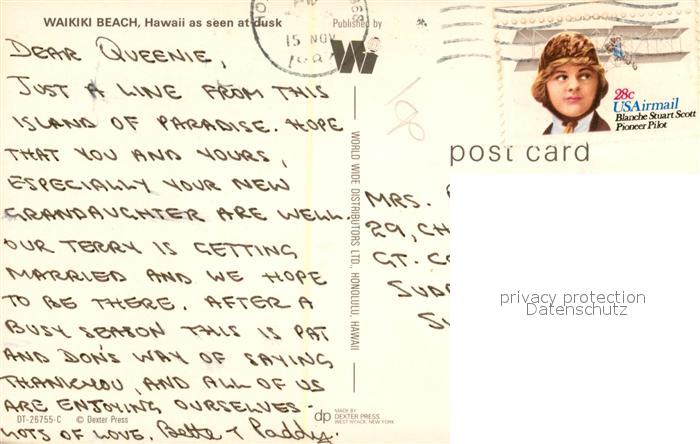 WAIKIKI BEACH, Hawaii as seen at dusk
DEAR QUEENIE,
JUST A LINE FROM THIS
ISLAND OF PARADISE. HOPE
THAT YOU AND YOURS,
ESPECIALLY YOUR NEW
GRANDAUGHTER ARE WELL.
OUR TERRY IS GETTING
MARRIED AND WE HOPE
TO BE THERE. AFTER A
BUSY SEASON THIS IS PAT
AND DON'S WAY OF SAYING
THANKYOU, AND ALL OF US
ARE ENJOYING OURSELVES-
LOTS OF LOVE. Bette + Paddy.
DT-26755-C © Dexter Press
Published by
Wi
15 NOV
WORLD WIDE DISTRIBUTORS LTD., HONOLULU, HAWAII
dp MADE BY
DEXTER PRESS
WEST NYACK, NEW YORK
28c
USAirmail
Blanche Stuart Scott
Pioneer Pilot
post card
MRS.
29, CH
GT. CO
SUD
SU
privacy protection
Datenschutz